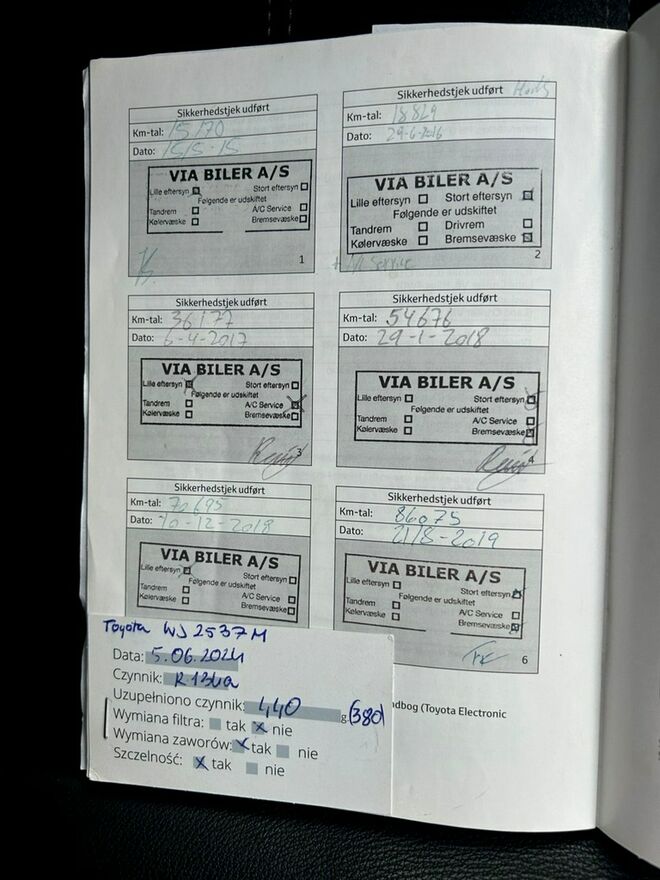 Sikkerhedstjek udført
Km-tal: 15170
Dato: 15/5-15
VIA BILER A/S
Lille eftersyn Stort eftersyn
Følgende er udskiftet
Tandrem A/C Service
Kølervæske Bremsevæske
1
Sikkerhedstjek udført
Km-tal: 18829
Dato: 29-6-2016
VIA BILER A/S
Lille eftersyn Stort eftersyn
Følgende er udskiftet
Tandrem Drivrem
Kølervæske Bremsevæske
2
+ A/C Service
Sikkerhedstjek udført
Km-tal: 36177
Dato: 6-4-2017
VIA BILER A/S
Lille eftersyn Stort eftersyn
Følgende er udskiftet
Tandrem A/C Service
Kølervæske Bremsevæske
3
Sikkerhedstjek udført
Km-tal: 54676
Dato: 29-1-2018
VIA BILER A/S
Lille eftersyn Stort eftersyn
Følgende er udskiftet
Tandrem A/C Service
Kølervæske Bremsevæske
4
Sikkerhedstjek udført
Km-tal: 70695
Dato: 10-12-2018
VIA BILER A/S
Lille eftersyn Stort eftersyn
Følgende er udskiftet
Tandrem A/C Service
Kølervæske Bremsevæske
Sikkerhedstjek udført
Km-tal: 86075
Dato: 21/8-2019
VIA BILER A/S
Lille eftersyn Stort eftersyn
Følgende er udskiftet
Tandrem A/C Service
Kølervæske Bremsevæske
6
ndbog (Toyota Electronic
Toyota WJ 2537M
Data: 5.06.2024
Czynnik: R134a
Uzupełniono czynnik: 440 g (380)
Wymiana filtra: tak x nie
Wymiana zaworów: x tak nie
Szczelność: x tak nie